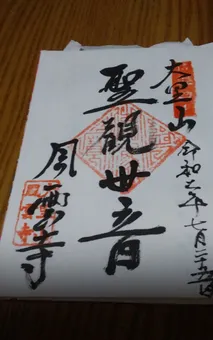 大黒山
令和元年七月二十五日
聖観世音
雲寺